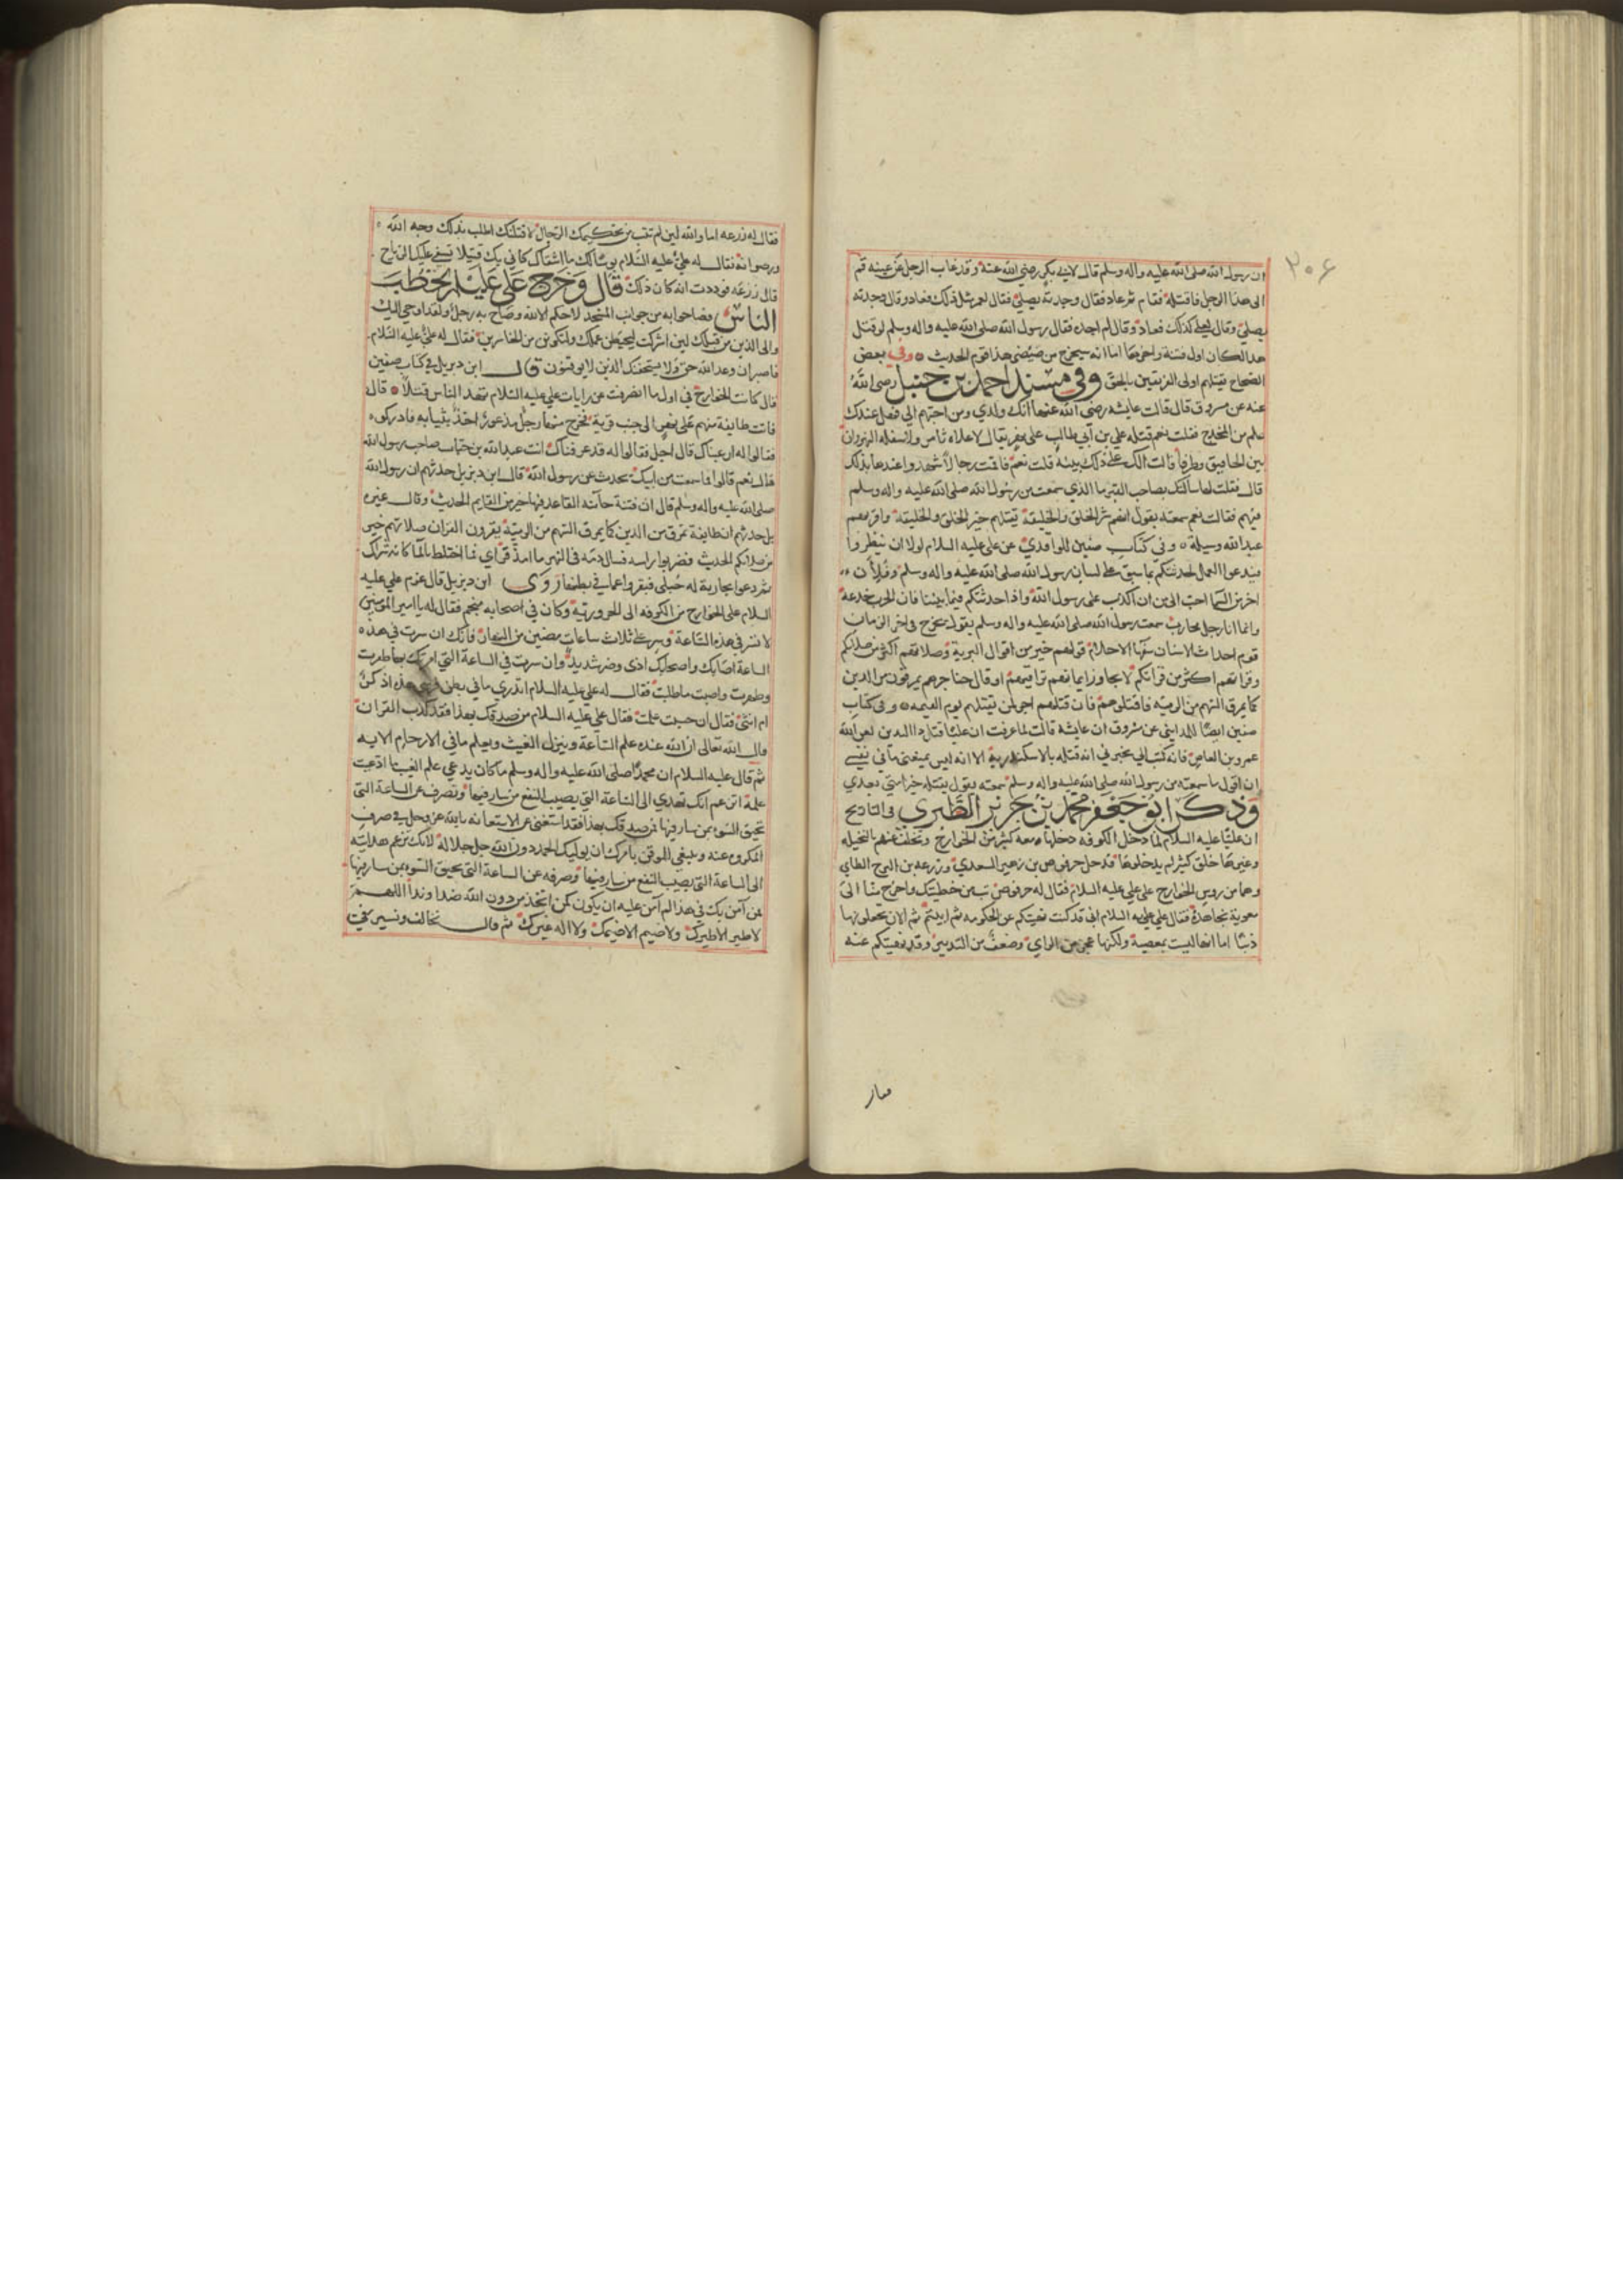 ٣٠٦
ان رسول الله صلى الله عليه واله وسلم قال لابي بكر رضي الله عنه وقد غاب الرجل عن عينه قم
الى هذا الرجل فاقتله فقام ثم عاد فقال وجدته يصلي فقال لعمر مثل ذلك فعاد وقال وجدته
يصلي وقال لعلي كذلك فعاد وقال لم اجده فقال رسول الله صلى الله عليه واله وسلم لو قتل
هذا لكان اول فتنة واخرها اما انه سيخرج من ضئضئ هذا قوم الحديث ٥ وفي بعض
الصحاح يقتلهم اولى الفريقين بالحق وفي مسند احمد بن حنبل رضي الله
عنه عن مسروق قال قالت عايشه رضي الله عنها انك ولدي ومن احبهم الي فهل عندك
علم من المخدج فقلت نعم قتله علي بن ابي طالب على نهر يقال لاعلاه تامرا ولاسفله النهروان
بين لخافيق وطرفا قالت الك على ذلك بينه قلت نعم فاقت رجالا شهدوا عندها بذلك
قال فقلت لها سالتك بصاحب القبر ما الذي سمعت من رسول الله صلى الله عليه واله وسلم
فيهم فقالت نعم سمعته يقول انهم شر الخلق والخليقة يقتلهم خير الخلق والخليقة واقربهم
عند الله وسيلة ٥ وفي كتاب صفين للواقدي عن علي عليه السلام لولا ان تبطروا
فتدعوا العمل لحدثتكم بما سبق على لسان رسول الله صلى الله عليه واله وسلم وقال ان
اخر من السما احب الي من ان اكذب على رسول الله واذا حدثتكم فيما بيننا فان الحرب خدعة
وانما انا رجل محارب سمعت رسول الله صلى الله عليه واله وسلم يقول يخرج في اخر الزمان
قوم احداث الاسنان سفها الاحلام قولهم خير من اقوال البرية وصلاتهم اكثر من صلاتكم
وقراتهم اكثر من قراتكم لا يجاوز ايمانهم تراقيهم او قال حناجرهم يمرقون من الدين
كما يمرق السهم من الرميه فاقتلوهم فان قتلهم اجر لمن قتلهم يوم القيمه ٥ وفي كتاب
صفين ايضا للمدايني عن مسروق ان عايشة قالت لما عرفت ان عليا قتل ذا الثديه لعن الله
عمرو بن العاص فانه كتب الي يخبرني انه قتله بالاسكندرية الا انه ليس يمنعني ما في نفسي
ان اقول ما سمعته من رسول الله صلى الله عليه واله وسلم سمعته يقول يقتله خير امتي بعدي
وذكر ابو جعفر محمد بن جرير الطبري في التاريخ
ان عليا عليه السلام لما دخل الكوفه دخلها معه كثير من الخوارج وتخلف منهم بالنخيله
وغيرها خلق كثير لم يدخلوها فدخل حرقوص بن زهير السعدي وزرعه بن البرج الطاي
وهما من روس الخوارج على علي عليه السلام فقال له حرقوص تب من خطيتك واخرج بنا الى
معوية نجاهده فقال علي عليه السلام اني قد كنت نهيتكم عن الحكومه ثم ابيتم ثم الان تجعلونها
ذنبا اما انها ليست بمعصية ولكنها عجز من الراي وضعف من التدبير وقد نهيتكم عنه
فقال له زرعه اما والله لين لم تتب من تحكيمك الرجال لاقتلنك اطلب بذلك وجه الله
ورضوانه فقال له علي عليه السلام بوسا لك ما اشقاك كاني بك قتيلا تسفي عليك الرياح
قال زرعه فوددت انه كان ذلك قال وخرج علي عليلم يخطب
الناس فصاحوا به من جوانب المسجد لا حكم الا لله وصاح به رجل ولقد اوحي اليك
والى الذين من قبلك لين اشركت ليحبطن عملك ولتكونن من الخاسرين فقال له علي عليه السلام
فاصبر ان وعد الله حق ولا يستخفنك الذين لا يوقنون قال ابن ديزيل في كتاب صفين
قال كانت الخوارج في اول ما انصرفت عن رايات علي عليه السلام تهدد الناس قتلا ٥ قال
فاتت طايفة منهم على نهر الى جنب قرية فخرج منها رجل مذعور اخذ بثيابه فادركوه
فقالوا له ارعبناك قال اجل فقالوا له قد عرفناك انت عبد الله بن خباب صاحب رسول الله
قال نعم قالوا فما سمعت من ابيك تحدث عن رسول الله قال ابن ديزيل حدثهم ان رسول الله
صلى الله عليه واله وسلم قال ان فتنة جاته القاعد فيها خير من القايم الحديث وقال غيره
بل حدثهم ان طايفة تمرق من الدين كما يمرق السهم من الرمية يقرون القران صلاتهم خير
من صلاتكم الحديث فضربوا راسه فسال دمه في النهر ما امذقر اي فما اختلط بالما كانه شراك
ثم دعوا بجارية له حبلى فبقروا عما في بطنها روى ابن ديزيل قال عزم علي عليه
السلام على الخوارج من الكوفه الى الحرورية وكان في اصحابه منجم فقال له يا امير المومنين
لا تسر في هذه الساعة وسر على ثلاث ساعات مضين من النهار فانك ان سرت في هذه
الساعة اصابك واصحابك اذى وضر شديد وان سرت في الساعة التي امرتك بها ظفرت
وظهرت واصبت ما طلبت فقال له علي عليه السلام اتدري ما في بطن فرسي هذه اذكر
ام انثى فقال ان حسبت علمت فقال علي عليه السلام من صدقك بهذا فقد كذب القران
قال الله تعالى ان الله عنده علم الساعة وينزل الغيث ويعلم ما في الارحام الايه
ثم قال عليه السلام ان محمدا صلى الله عليه واله وسلم ما كان يدعي علم الغيب ما ادعيت
علمه اتزعم انك تهدي الى الساعة التي يصيب النفع من سار فيها وتصرف عن الساعة التي
تحيق السوء بمن سار فيها فمن صدقك بهذا فقد استغنى عن الاستعانه بالله عز وجل في صرف
المكروه عنه وينبغي للموقن بامرك ان يوليك الحمد دون الله جل جلاله لانك تزعم هدايته
الى الساعة التي يصيب النفع من سار فيها وصرفه عن الساعة التي يحيق السوء بمن سار فيها
فمن آمن بك في هذا لم آمن عليه ان يكون كمن اتخذ من دون الله ضدا وندا اللهم
لا طير الا طيرك ولا ضيم الا ضيمك ولا اله غيرك ثم قال نخالف ونسير في